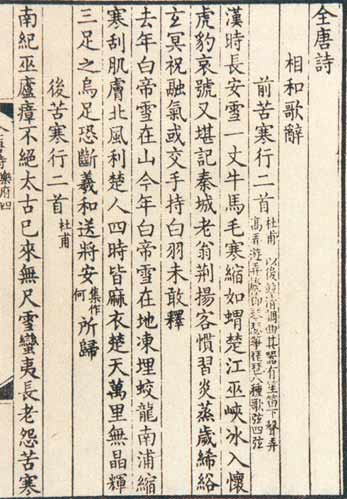 全唐詩
相和歌辭
前苦寒行二首 杜甫 以後並清調曲其器有笙笛下聲弄
高弄遊弄篪節琴瑟箏琵琶八種歌弦四弦
漢時長安雪一丈牛馬毛寒縮如蝟楚江巫峽冰入懷
虎豹哀號又堪記秦城老翁荊揚客慣習炎蒸歲絺綌
玄冥祝融氣或交手持白羽未敢釋
去年白帝雪在山今年白帝雪在地凍埋蛟龍南浦縮
寒刮肌膚北風利楚人四時皆麻衣楚天萬里無晶輝
三足之烏足恐斷羲和送將安集作何所歸
後苦寒行二首 杜甫
南紀巫廬瘴不絕太古已來無尺雪蠻夷長老怨苦寒